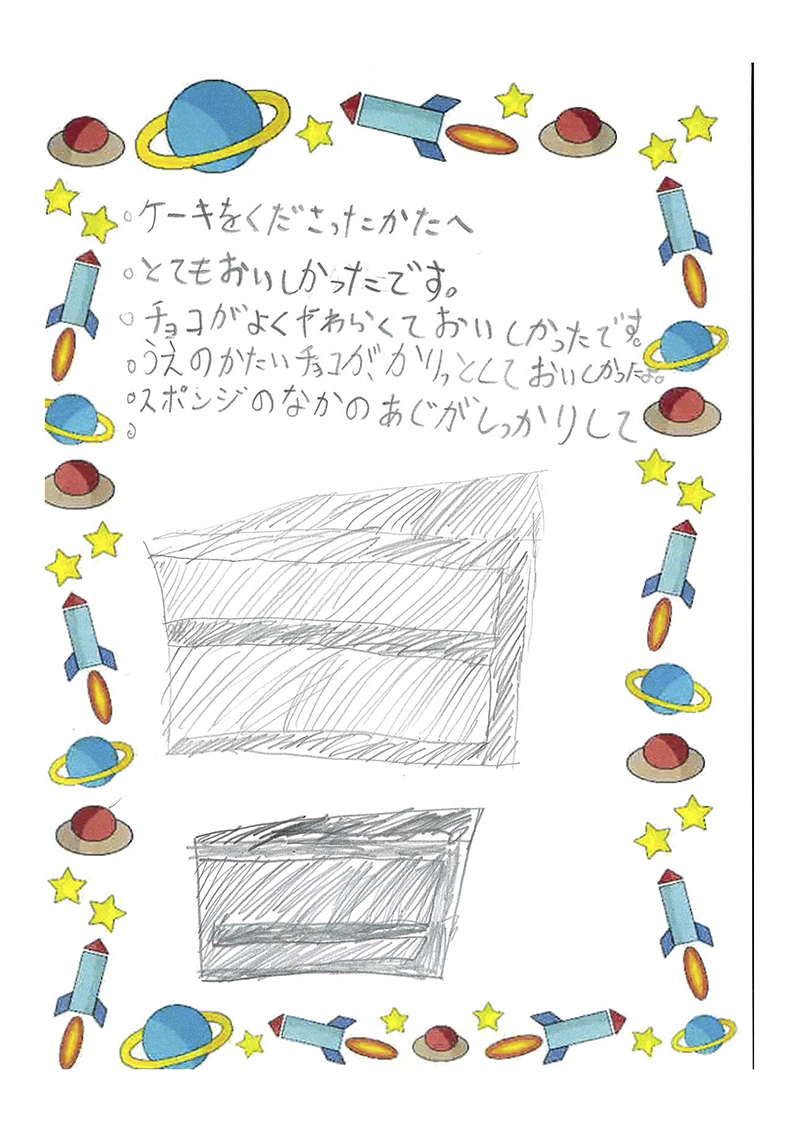 ○ケーキをくださったかたへ
○とてもおいしかったです。
○チョコがよくやわらくておいしかったです。
○うえのかたいチョコが、かりっとしておいしかったよ。
○スポンジのなかのあじがしっかりして
○